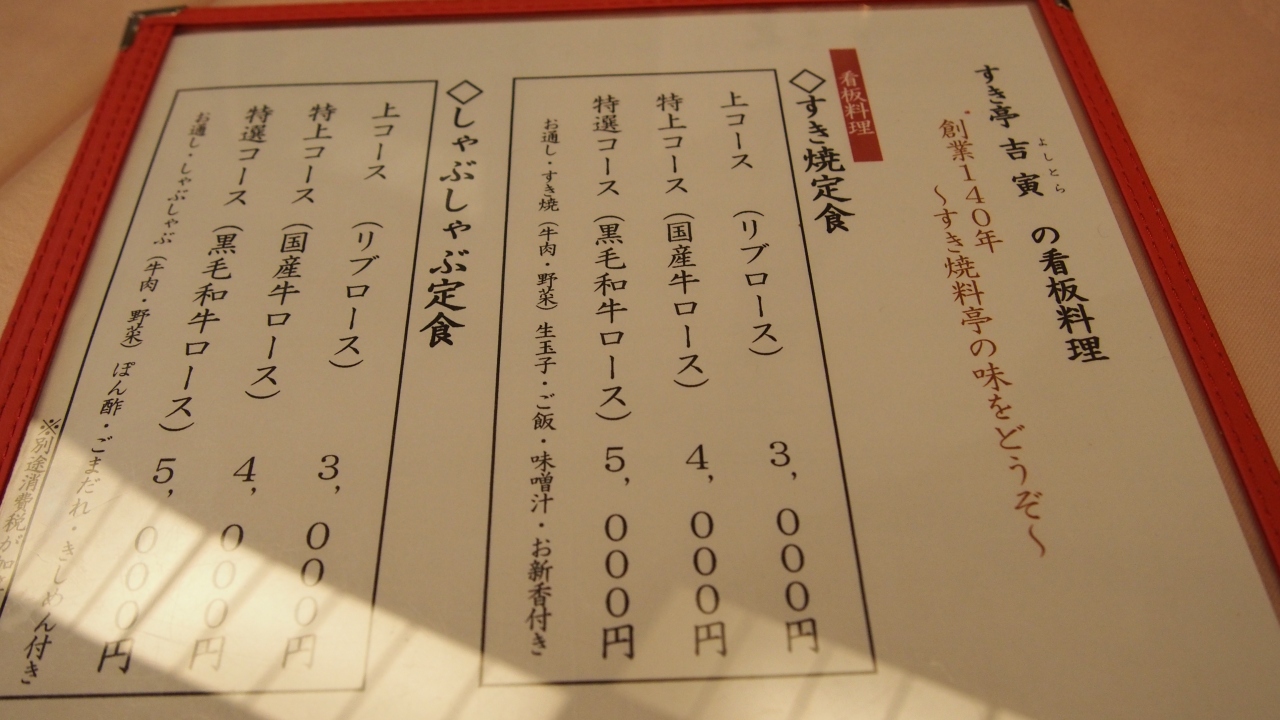 すき亭 吉寅 の看板料理
よしとら
創業140年
～すき焼料亭の味をどうぞ～
看板料理
◇すき焼定食
上コース （リブロース） 3，000円
特上コース （国産牛ロース） 4，000円
特選コース （黒毛和牛ロース） 5，000円
お通し・すき焼（牛肉・野菜）生玉子・ご飯・味噌汁・お新香付き
◇しゃぶしゃぶ定食
上コース （リブロース） 3，000円
特上コース （国産牛ロース） 4，000円
特選コース （黒毛和牛ロース） 5，000円
お通し・しゃぶしゃぶ（牛肉・野菜）ぽん酢・ごまだれ・きしめん付き
※別途消費税が